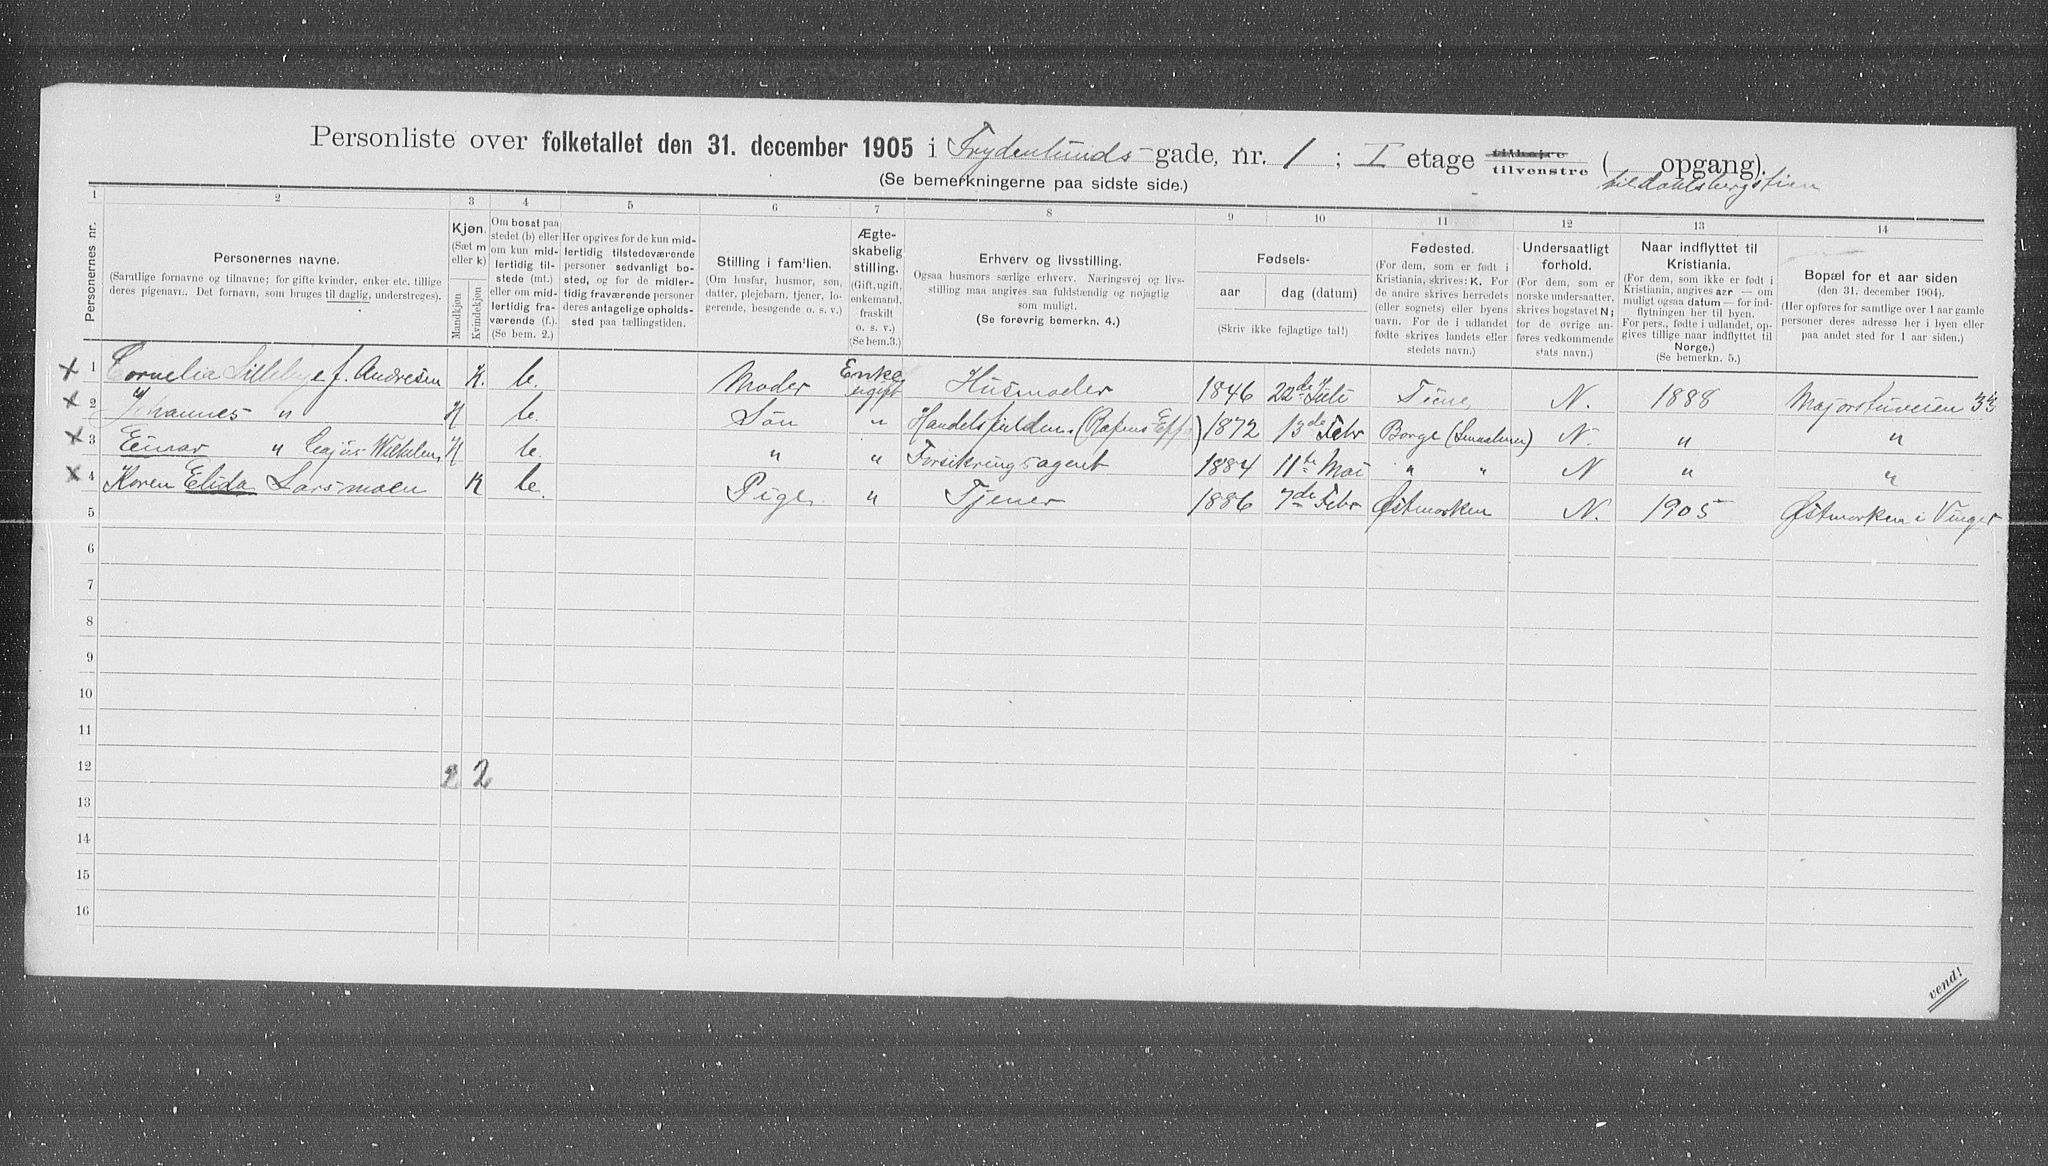 Personliste over folketallet den 31. december 1905 i Frydenlunds-gade, nr. 1; I etage tilhøire tilvenstre ( opgang).
(Se bemerkningerne paa sidste side.)
til dahlsbergstien
1 2 3 4 5 6 7 8 9 10 11 12 13 14
Personernes nr.
Personernes navne.
(Samtlige fornavne og tilnavne; for gifte kvinder, enker etc. tillige
deres pigenavn. Det fornavn, som bruges til daglig, understreges).
Kjøn.
(Sæt m
eller k)
Mandkjøn
Kvindekjøn
Om bosat paa
stedet (b) eller
om kun mid-
lertidig til-
stede (mt.)
eller om mid-
lertidig fra-
værende (f.).
(Se bem. 2.)
Her opgives for de kun mid-
lertidig tilstedeværende
personer sedvanligt bo-
sted, og for de midler-
tidig fraværende personer
deres antagelige opholds-
sted paa tællingstiden.
Stilling i familien.
(Om husfar, husmor, søn,
datter, plejebarn, tjener, lo-
gerende, besøgende o. s. v.)
Ægte-
skabelig
stilling.
(Gift, ugift,
enkemand,
fraskilt
o. s. v.)
(Se bem.3.)
Erhverv og livsstilling.
Ogsaa husmors særlige erhverv. Næringsvej og livs-
stilling maa angives saa fuldstændig og nøjagtig
som muligt.
(Se forøvrig bemerkn. 4.)
Fødsels-
aar
dag (datum)
(Skriv ikke fejlagtige tal!)
Fødested.
(For dem, som er født i
Kristiania, skrives: K. For
de andre skrives herredets
(eller sognets) eller byens
navn. For de i udlandet
fødte skrives landets eller
stedets navn.)
Undersaatligt
forhold.
(For dem, som er
norske undersaatter,
skrives bogstavet N;
for de øvrige an-
føres vedkommende
stats navn.)
Naar indflyttet til
Kristiania.
(For dem, som ikke er født i
Kristiania, angives aar — om
muligt ogsaa datum — for ind-
flytningen her til byen.
For pers., fødte i udlandet, op-
gives tillige naar indflyttet til
Norge,)
(Se bemerkn. 5.)
Bopæl for et aar siden
(den 31. december 1904).
(Her opføres for samtlige over 1 aar gamle
personer deres adresse her i byen eller
paa andet sted for 1 aar siden.)
x 1 Cornelia Lilleby f. Andresen K. b. Moder Enke Husmoder 1846 22de Juli Tune, N. 1888 Majorstuveien 33
x 2 Johannes " M b. Søn ugift " 1872 13de Febr Borge (Smaalenene) N. " "
x 3 Einar " Cajus Wilhelm M b. " " Forsikringsagent 1884 11te Mai " " N " "
x 4 Karen Elida Larsmoen K b. Pige " Tjener 1886 7de Febr Østmarken N. 1905 Østmarken i Vinger
5
6
7
8
9
10
11
12 2 2
13
14
15
16
vend!